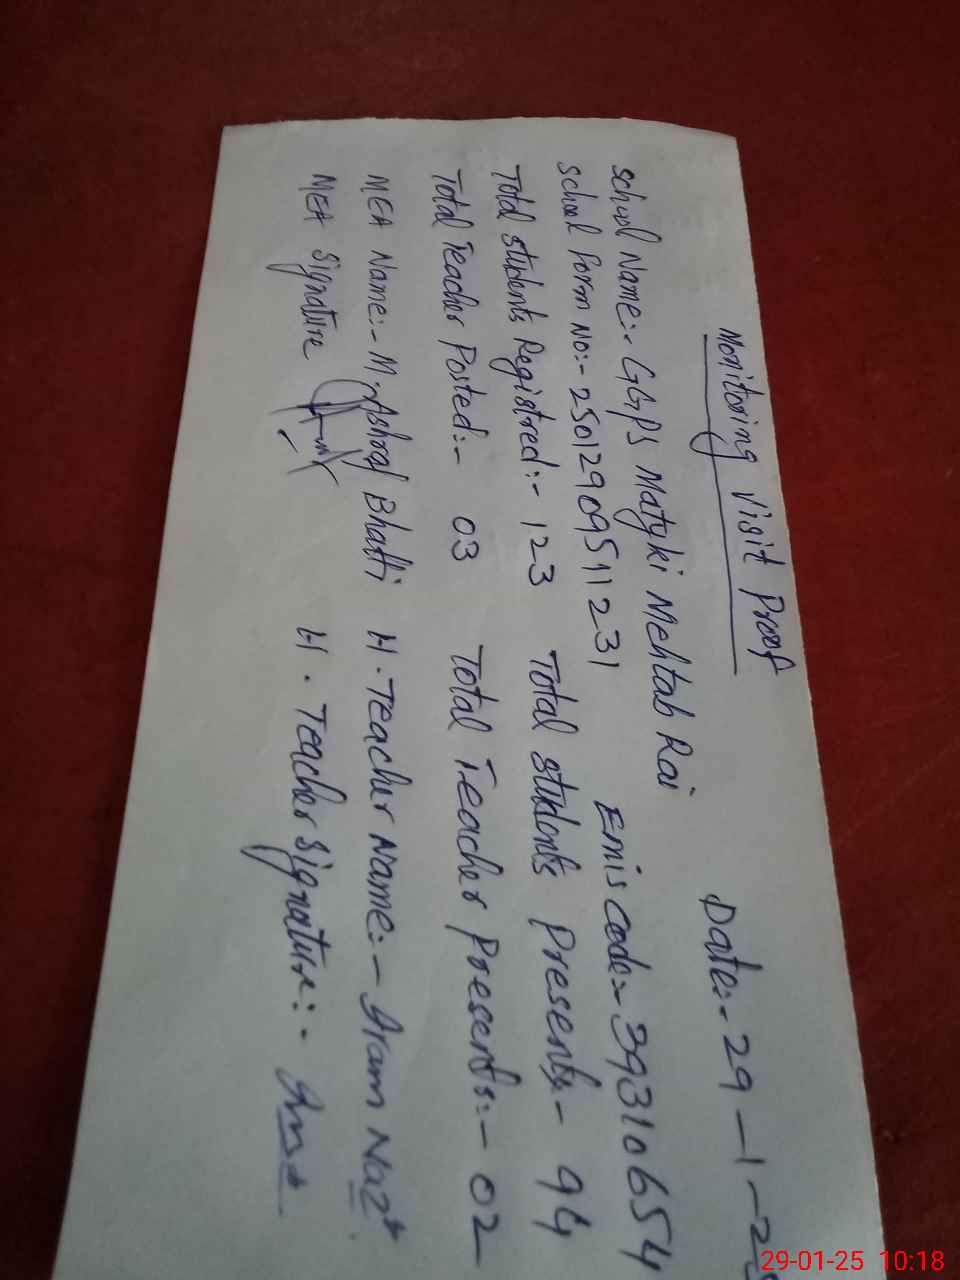 Monitoring Visit Proof Date:- 29-1-25
School Name:- GGPS Matyki Mehtab Rai
School Form No:- 25012909511231 Emis code:- 39310654
Total students Registred:- 123 Total students Presents- 94
Total Teacher Posted:- 03 Total Teacher Presents:- 02
MEA Name:- M. Ashraf Bhatti H. Teacher Name:- Iram Naz
MEA Signature H. Teacher Signature:-
29-01-25 10:18